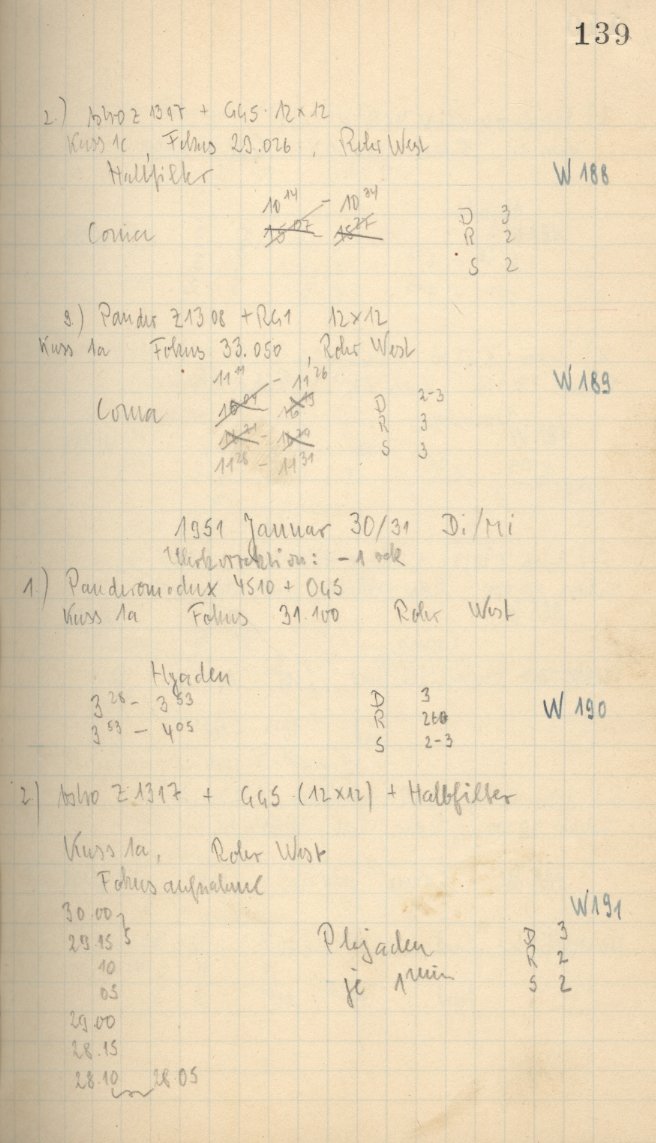 139
2.) Astro Z 1317 + GG5 12x12
Kass 1c, Fokus 29.026, Rohr West
Halbfilter
W 188
10 14 - 10 34
Coma
D 3
R 2
S 2
3.) Pander Z1308 + RG1 12x12
Kass 1a Fokus 33.050, Rohr West
W 189
11 11 - 11 26
Coma
D 2-3
R 3
S 3
11 28 - 11 31
1951 Januar 30/31 Di/Mi
Uhrkorrektion: - 1 sek
1.) Panderomodux 4510 + OG5
Kass 1a Fokus 31.100 Rohr West
Hyaden
3 28 - 3 53 D 3
3 53 - 4 05 R
W 190
S 2-3
2) Astro Z 1317 + GG5 (12x12) + Halbfilter
Kass 1a, Rohr West
Fokusaufnahme
W191
30.00
29.15 5
10
05
29.00
28.15
28.10 28.05
Plejaden
je 1 min
D 3
R 2
S 2